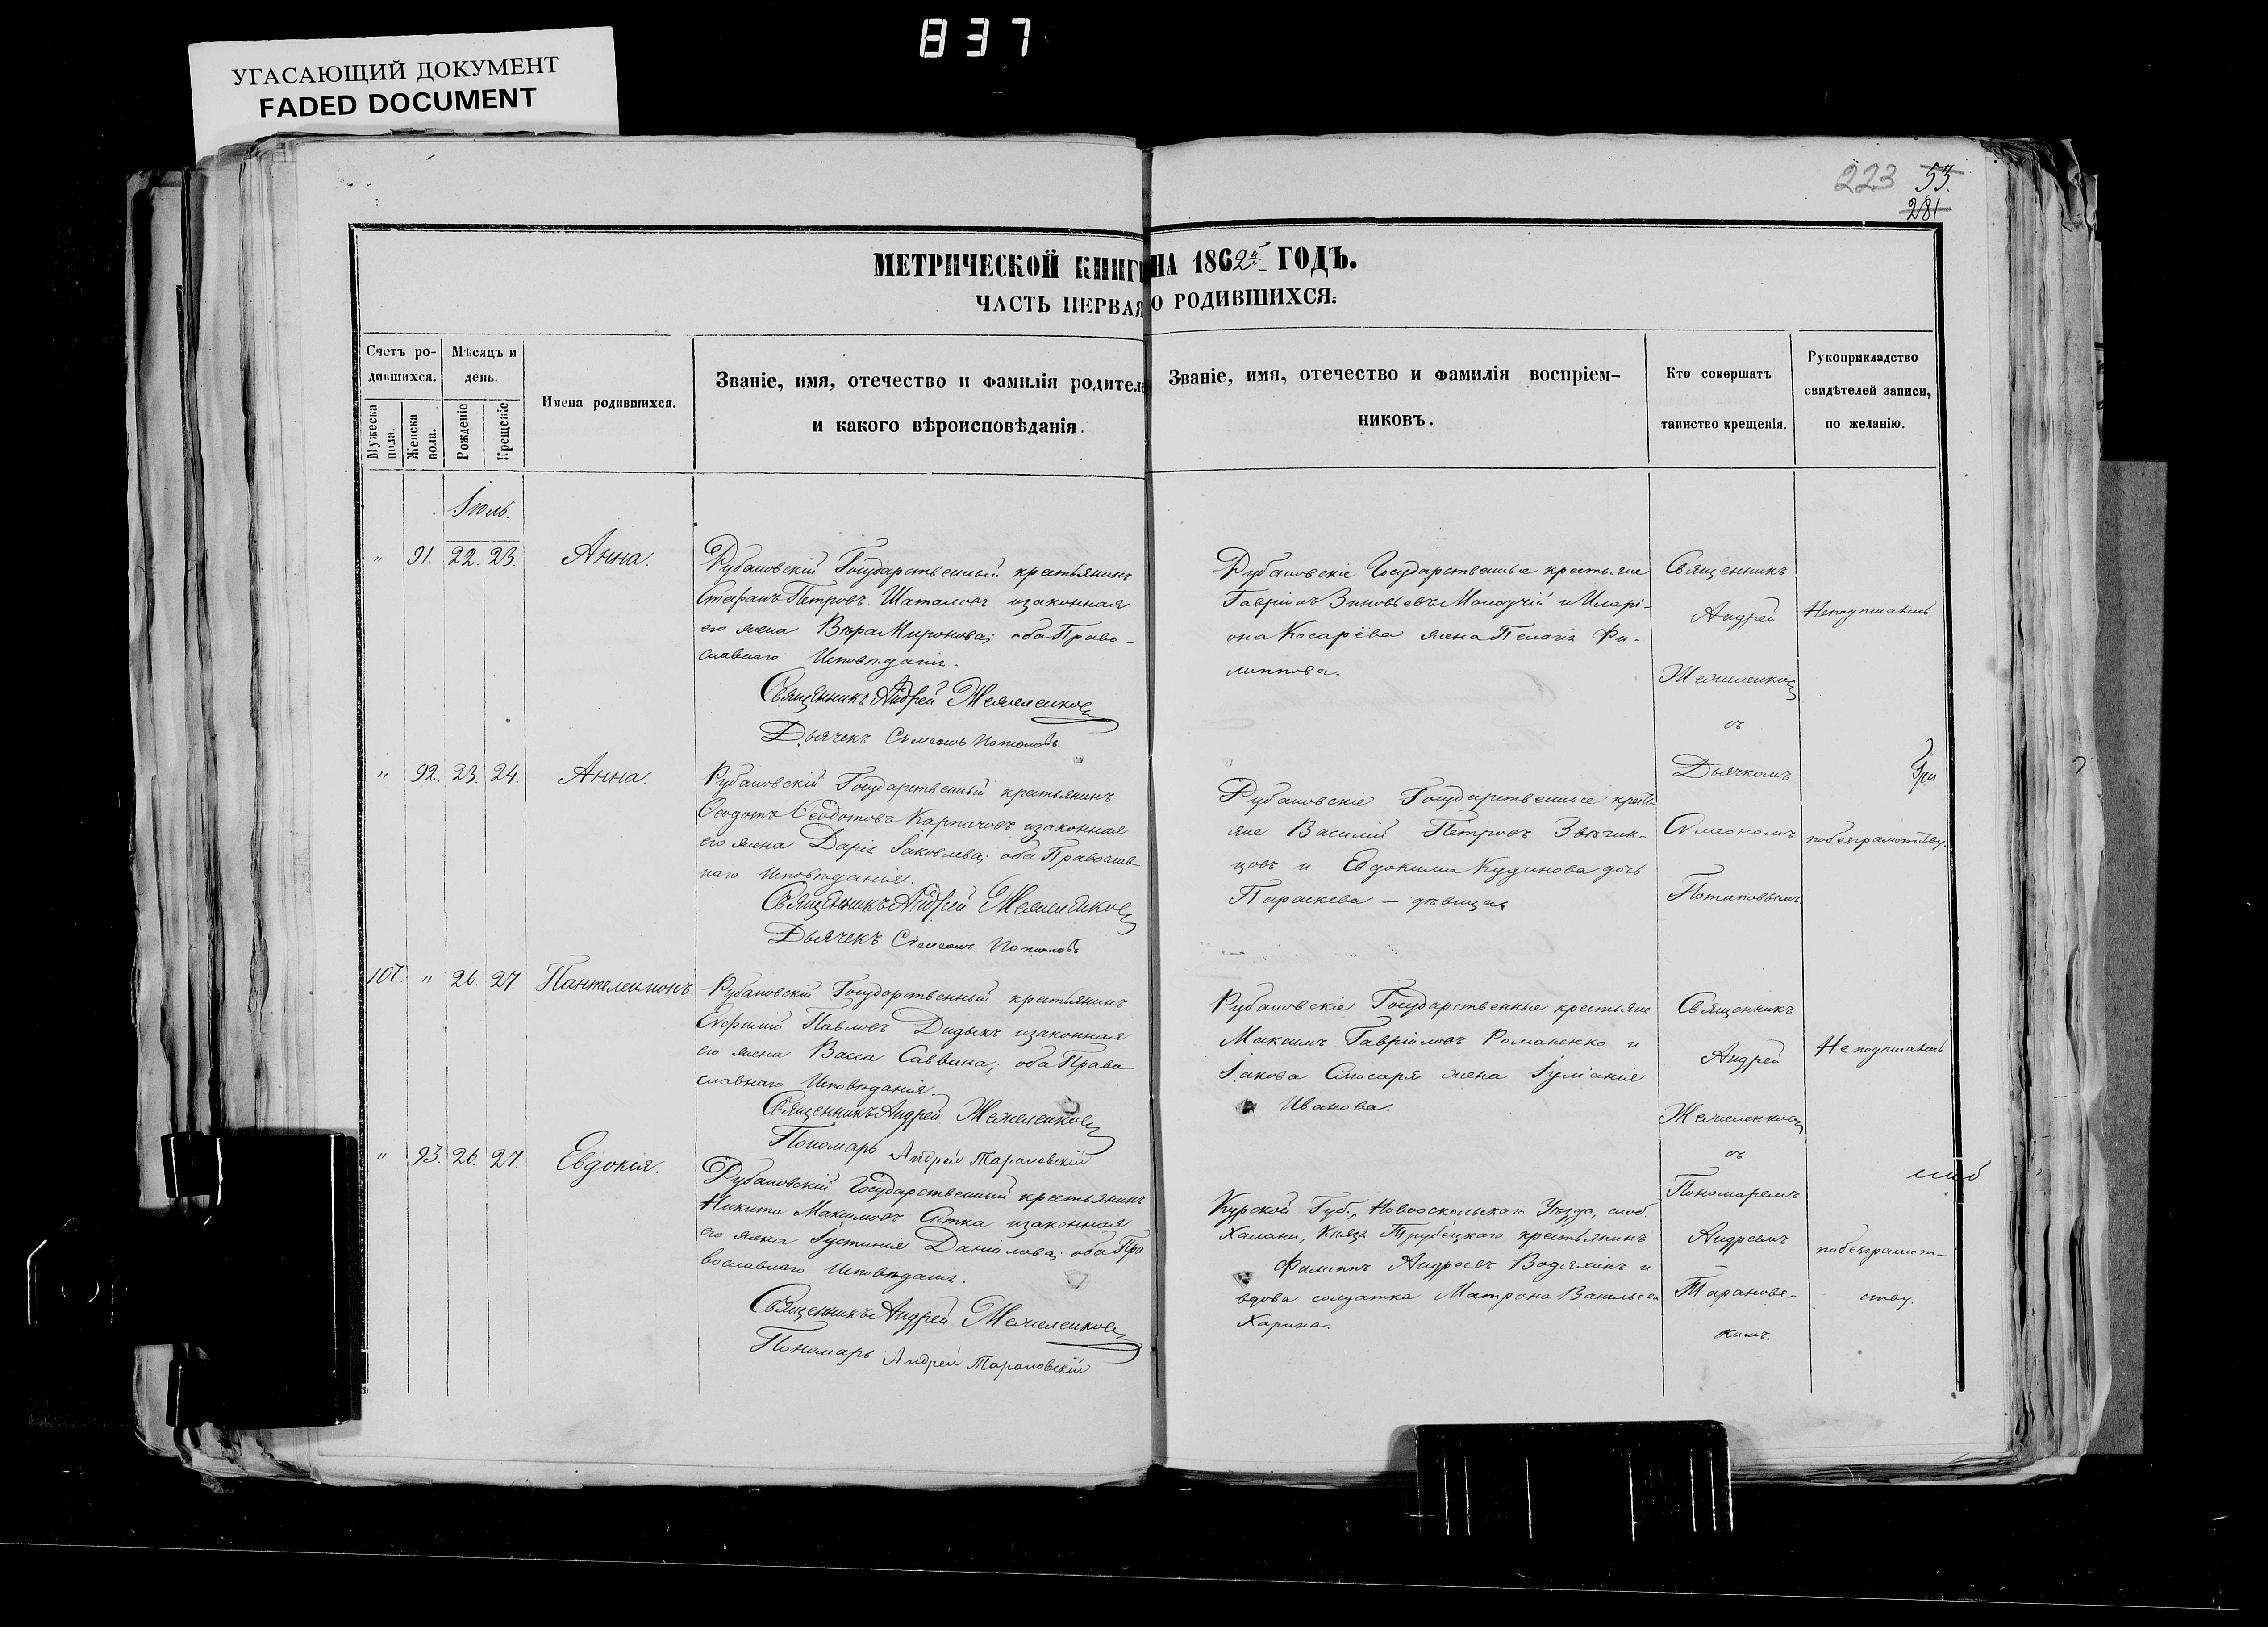 837
УГАСАЮЩИЙ ДОКУМЕНТ
FADED DOCUMENT
223 53.
281
МЕТРИЧЕСКОЙ КНИГ НА 1862й ГОДЪ.
ЧАСТЬ ПЕРВАЯ О РОДИВШИХСЯ.
Счетъ ро-
дившихся.
Мужеска
пола.
Женска
пола.
Мѣсяцъ и
день.
Рожденіе
Крещеніе
Имена родившихся.
Званіе, имя, отечество и фамилія родителе
и какого вѣроисповѣданія.
Званіе, имя, отечество и фамилія воспріем-
никовъ.
Кто совершатъ
таинство крещенія.
Рукоприкладство
свидѣтелей записи,
по желанію.
Іюль.
" 91. 22. 23. Анна.
Рубановскій Государственный крестьянинъ
Стефанъ Петровъ Шаталовъ изаконная
его жена Вѣра Миронова; оба Право-
славнаго Исповѣданія.
Священникъ Андрей Жежеленковъ
Дьячекъ Симеонъ Потаповъ.
Рубановскіе Государственные крестьяне
Гавріилъ Зиновьевъ Молодчій и Иларі-
она Косарёва жена Пелагія Фи-
липпова.
Священникъ
Андрей
Жежеленковъ
съ
Дьячкомъ
Симеономъ
Потаповымъ.
Неподписались
побезграмотству.
" 92. 23. 24. Анна.
Рубановскій Государственный крестьянинъ
Ѳеодотъ Ѳеодотовъ Карпачовъ изаконная
его жена Дарія Іаковлева; оба Православ
наго Исповѣданія.
Священникъ Андрей Жежеленковъ
Дьячекъ Симеонъ Потаповъ
Рубановскіе Государственные кресть
яне Василій Петровъ Звягин-
цовъ и Евдокима Кудинова дочь
Параскева — дѣвица.
107. " 26. 27. Пантелеимонъ.
Рубановскій Государственный крестьянинъ
Евфимій Павловъ Дидыкъ изаконная
его жена Васса Саввина; оба Право
славнаго Исповѣданія.
Священникъ Андрей Жежеленковъ
Пономарь Андрей Тарановскій
Рубановскіе Государственные крестьяне
Максимъ Гавріиловъ Романенко и
Іакова Слюсаря жена Іуліанія
Иванова.
Священникъ
Андрей
Жежеленковъ
съ
Пономаремъ
Андреемъ
Тарановс-
кимъ.
Не подписались
побезграмот-
ству.
" 93. 26. 27. Евдокія.
Рубановскій Государственный крестьянинъ
Никита Максимовъ Ситка изаконная
его жена Іустинія Даніилова; оба Пра
вославнаго Исповѣданія.
Священникъ Андрей Жежеленковъ
Пономарь Андрей Тарановскій
Курской Губ., Новооскольскаго Уѣзда, слоб.
Халани, Князя Трубецкаго крестьянинъ
Филиппъ Андреевъ Водяхинъ и
вдова солдатка Матрона Васильева
Харина.